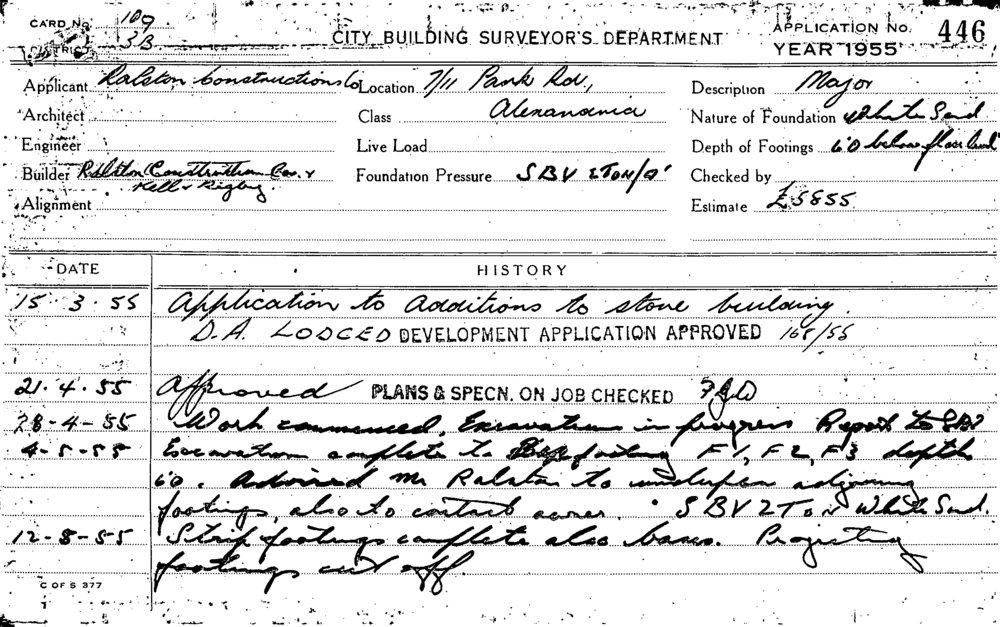 CARD No. 109
DISTRICT 3B
CITY BUILDING SURVEYOR'S DEPARTMENT
APPLICATION No. 446
YEAR 1955
Applicant Ralston Constructions Co Location 7/11 Park Rd., Description Major
Architect Class Alexandria Nature of Foundation White Sand
Engineer Live Load Depth of Footings 6'0 below floor level
Builder Ralston Construction Co. & Kell & Rigby Foundation Pressure SBV 2 TON/□' Checked by
Alignment Estimate £5855
DATE HISTORY
15 3 55 Application to additions to store building.
D.A. LODGED DEVELOPMENT APPLICATION APPROVED 168/55
21.4.55 Approved PLANS & SPECN. ON JOB CHECKED
28-4-55 Work commenced. Excavations in progress Report to
4-5-55 Excavation complete to footing F1, F2, F3 depth
6'0. Advised Mr Ralston to underpin adjoining
footings, also to contact owner. SBV 2 Ton White Sand.
12-8-55 Strip footings complete also bases. Projecting
footings cut off.
C OF S 377